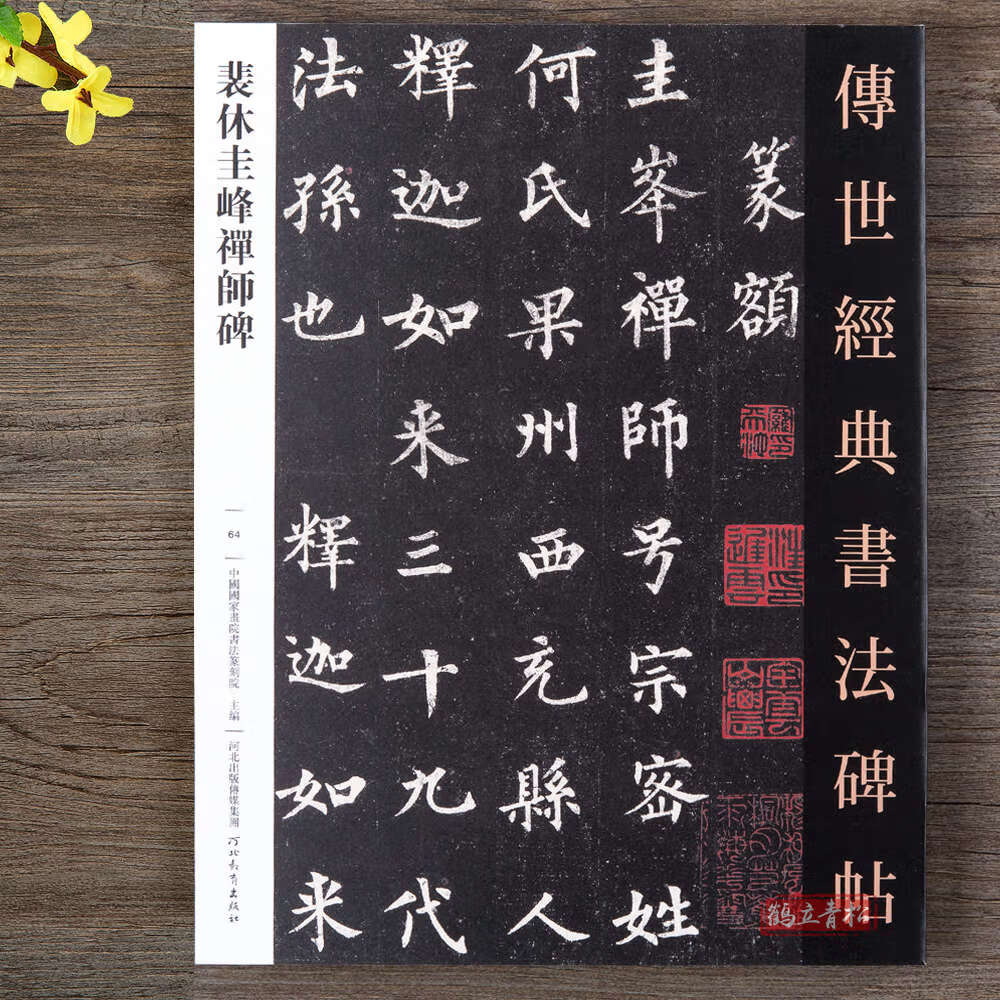 傳世經典書法碑帖
篆額
圭峯禪師号宗密姓
何氏果州西充縣人
釋迦如来三十九代
法孫也 釋迦如来
裴休圭峰禪師碑
64
中國國家畫院書法篆刻院 主編
河北出版傳媒集團
河北教育出版社
鹤立青松